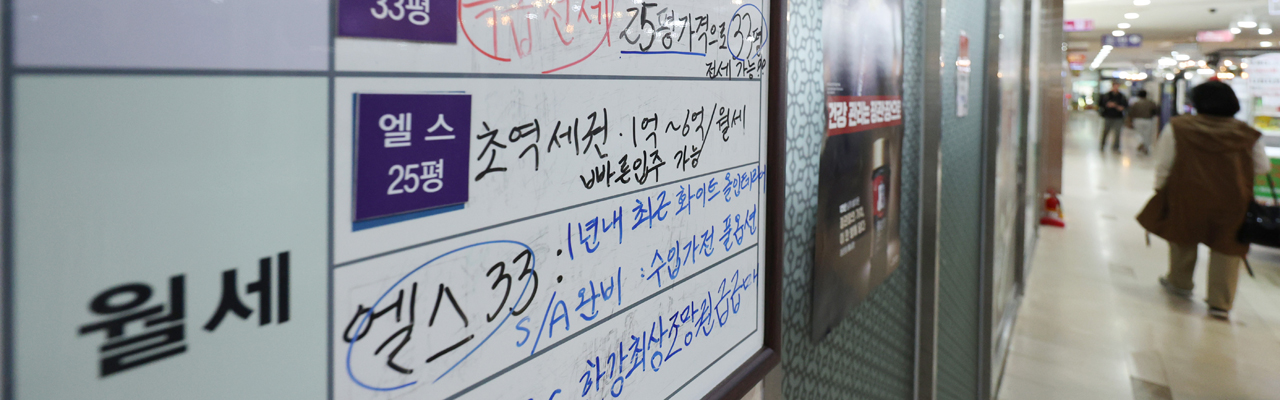 33평
급전세
25평가격으로 33평
전세 가능
엘스
25평
초역세권 · 1억~6억/월세
빠른입주 가능
월세
엘스 33 : 1년내 최근 화이트 올인테리어
S/A완비 : 수입가전 풀옵션
한강최상조망권급급매
건강 관리는